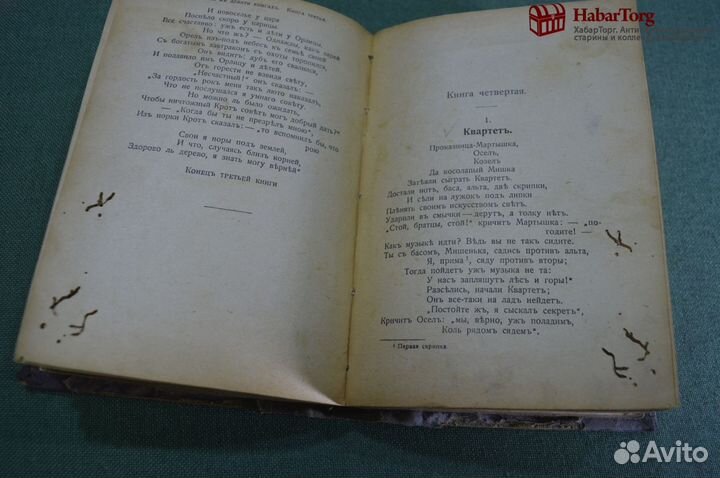 въ девяти книгахъ. Книга третья.
И новоселье у царя
Поспѣло скоро у царицы.
Все счастливо: ужъ есть и дѣти у Орлицы.
Но что жъ? — Однажды, какъ зарей
Орелъ изъ-подъ небесъ къ семьѣ своей
Съ богатымъ завтракомъ съ охоты торопился,
Онъ видитъ: дубъ его свалился,
И подавило имъ Орлицу и дѣтей.
Отъ горести не взвидя свѣту,
„Несчастный!“ онъ сказалъ:
„За гордость рокъ меня такъ люто наказалъ,
Что не послушался я умнаго совѣту.
Но можно ль было ожидать,
Чтобы ничтожный Кротъ совѣтъ могъ добрый дать?“
— „Когда бы ты не презрѣлъ мною“,
Изъ норки Кротъ сказалъ: — „то вспомнилъ бы, что
рою
Свои я норы подъ землей,
И что, случаясь близъ корней,
Здорово ль дерево, я знать могу вѣрнѣй“
Конецъ третьей книги
Книга четвертая.
1.
Квартетъ.
Проказница-Мартышка,
Оселъ,
Козелъ
Да косолапый Мишка
Затѣяли сыграть Квартетъ.
Достали нотъ, баса, альта, двѣ скрипки
И сѣли на лужокъ подъ липки
Плѣнять своимъ искусствомъ свѣтъ.
Ударили въ смычки — дерутъ, а толку нѣтъ.
„Стой, братцы, стой!“ кричитъ Мартышка: — „по-
годите!
Какъ музыкѣ идти? Вѣдь вы не такъ сидите.
Ты съ басомъ, Мишенька, садись противъ альта,
Я, прима¹, сяду противъ вторы;
Тогда пойдетъ ужъ музыка не та:
У насъ запляшутъ лѣсъ и горы!“
Разсѣлись, начали Квартетъ;
Онъ все-таки на ладъ нейдетъ.
„Постойте жъ, я сыскалъ секретъ“,
Кричитъ Оселъ: „мы, вѣрно, ужъ поладимъ,
Коль рядомъ сядемъ“.
¹ Первая скрипка.
HabarTorg
ХабарТорг. Анти
старины и колле
Avito